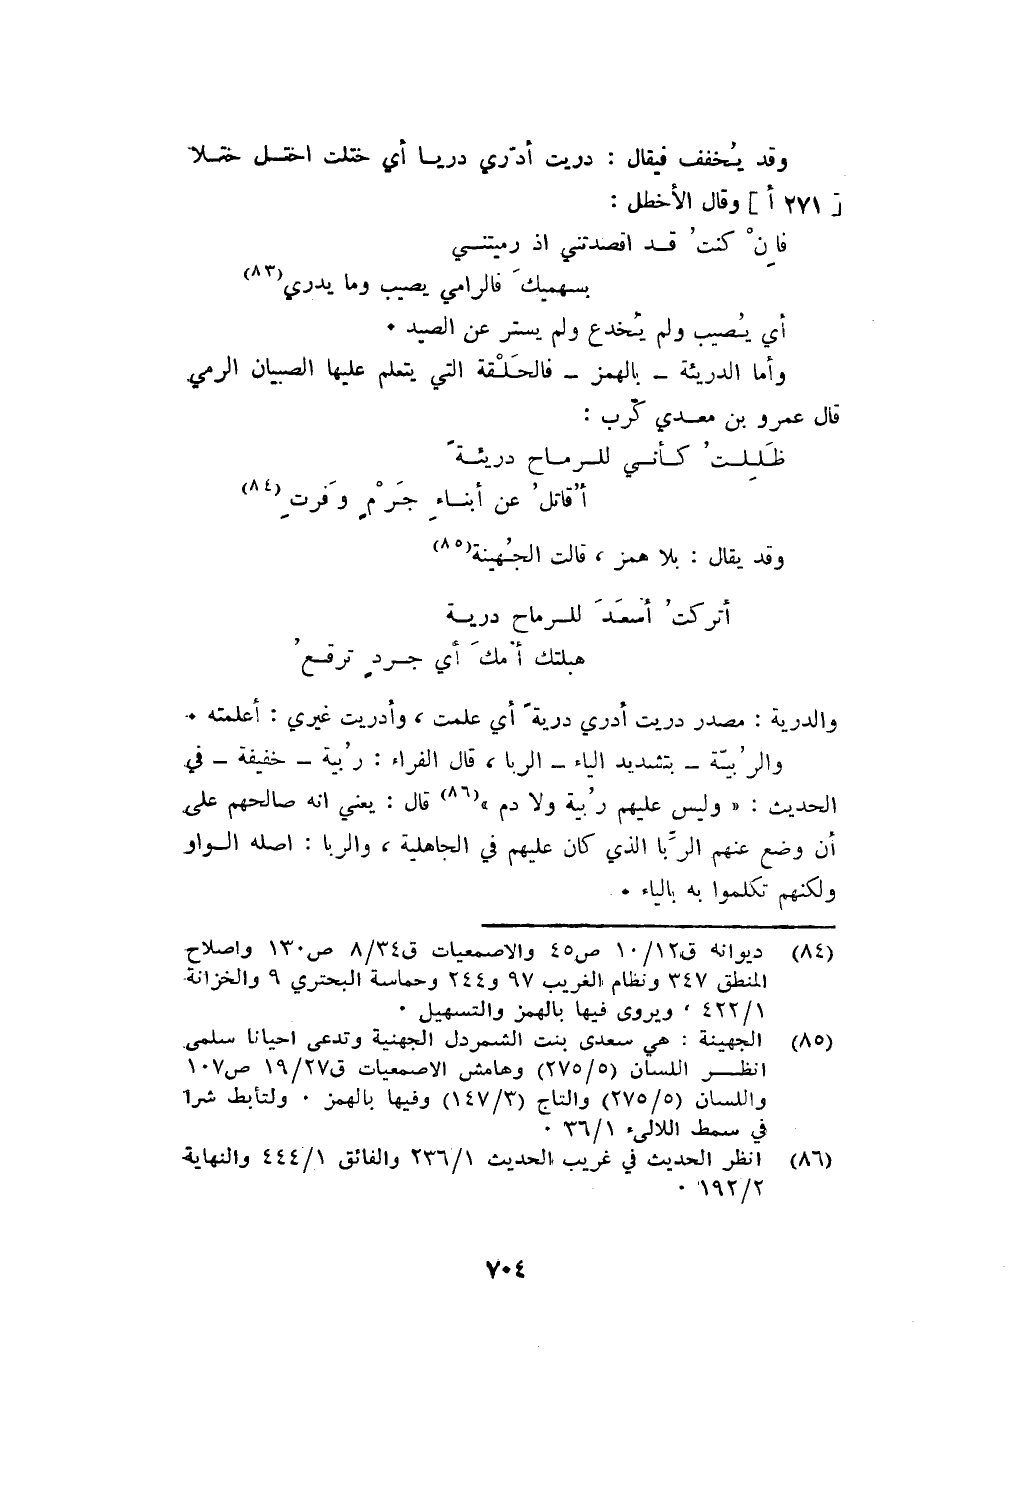 وقد يُخفف فيقال : دريت أدْري دريـا أي ختلت اختـل ختـلا
[ ٢٧١ أ ] وقال الأخطل :
فإِنْ كنتُ قـد اقصدتني اذ رميتنـي
بسهميكَ فالرامي يصيب وما يدري(٨٣)
أي يُصيب ولم يُخدع ولم يستر عن الصيد ٠
وأما الدريئة ـ بالهمز ـ فالحَلْقة التي يتعلم عليها الصبيان الرمي
قال عمرو بن معـدي كَرب :
ظَلِلـتُ كـأنـي للـرمـاح دريئـةً
أُقاتلُ عن أبنـاءِ جَرْمٍ وَفرتِ(٨٤)
وقد يقال : بلا همز ، قالت الجُهينة(٨٥)
أتركتُ أسْعَدَ للـرماح دريـة
هبلتك أُمكَ أي جـردٍ ترقـعُ
والدرية : مصدر دريت أدري دريةً أي علمت ، وأدريت غيري : أعلمته ٠
والرُبيّة ـ بتشديد الياء ـ الربا ، قال الفراء : رُبية ـ خفيفة ـ في
الحديث : « وليس عليهم رُبية ولا دم »(٨٦) قال : يعني انه صالحهم على
أن وضع عنهم الرِّبا الذي كان عليهم في الجاهلية ، والربا : اصله الـواو
ولكنهم تكلموا به بالياء ٠
(٨٤) ديوانه ق١٠/١٢ ص٤٥ والاصمعيات ق٨/٣٤ ص١٣٠ واصلاح
المنطق ٣٤٧ ونظام الغريب ٩٧ و٢٤٤ وحماسة البحتري ٩ والخزانة
٤٢٢/١ ، ويروى فيها بالهمز والتسهيل ٠
(٨٥) الجهينة : هي سعدى بنت الشمردل الجهنية وتدعى احيانا سلمى
انظـــر اللسان (٢٧٥/٥) وهامش الاصمعيات ق١٩/٢٧ ص١٠٧
واللسان (٢٧٥/٥) والتاج (١٤٧/٣) وفيها بالهمز ٠ ولتأبط شرا
في سمط اللالىء ٣٦/١ ٠
(٨٦) انظر الحديث في غريب الحديث ٢٣٦/١ والفائق ٤٤٤/١ والنهاية
١٩٢/٢ ٠
٧٠٤